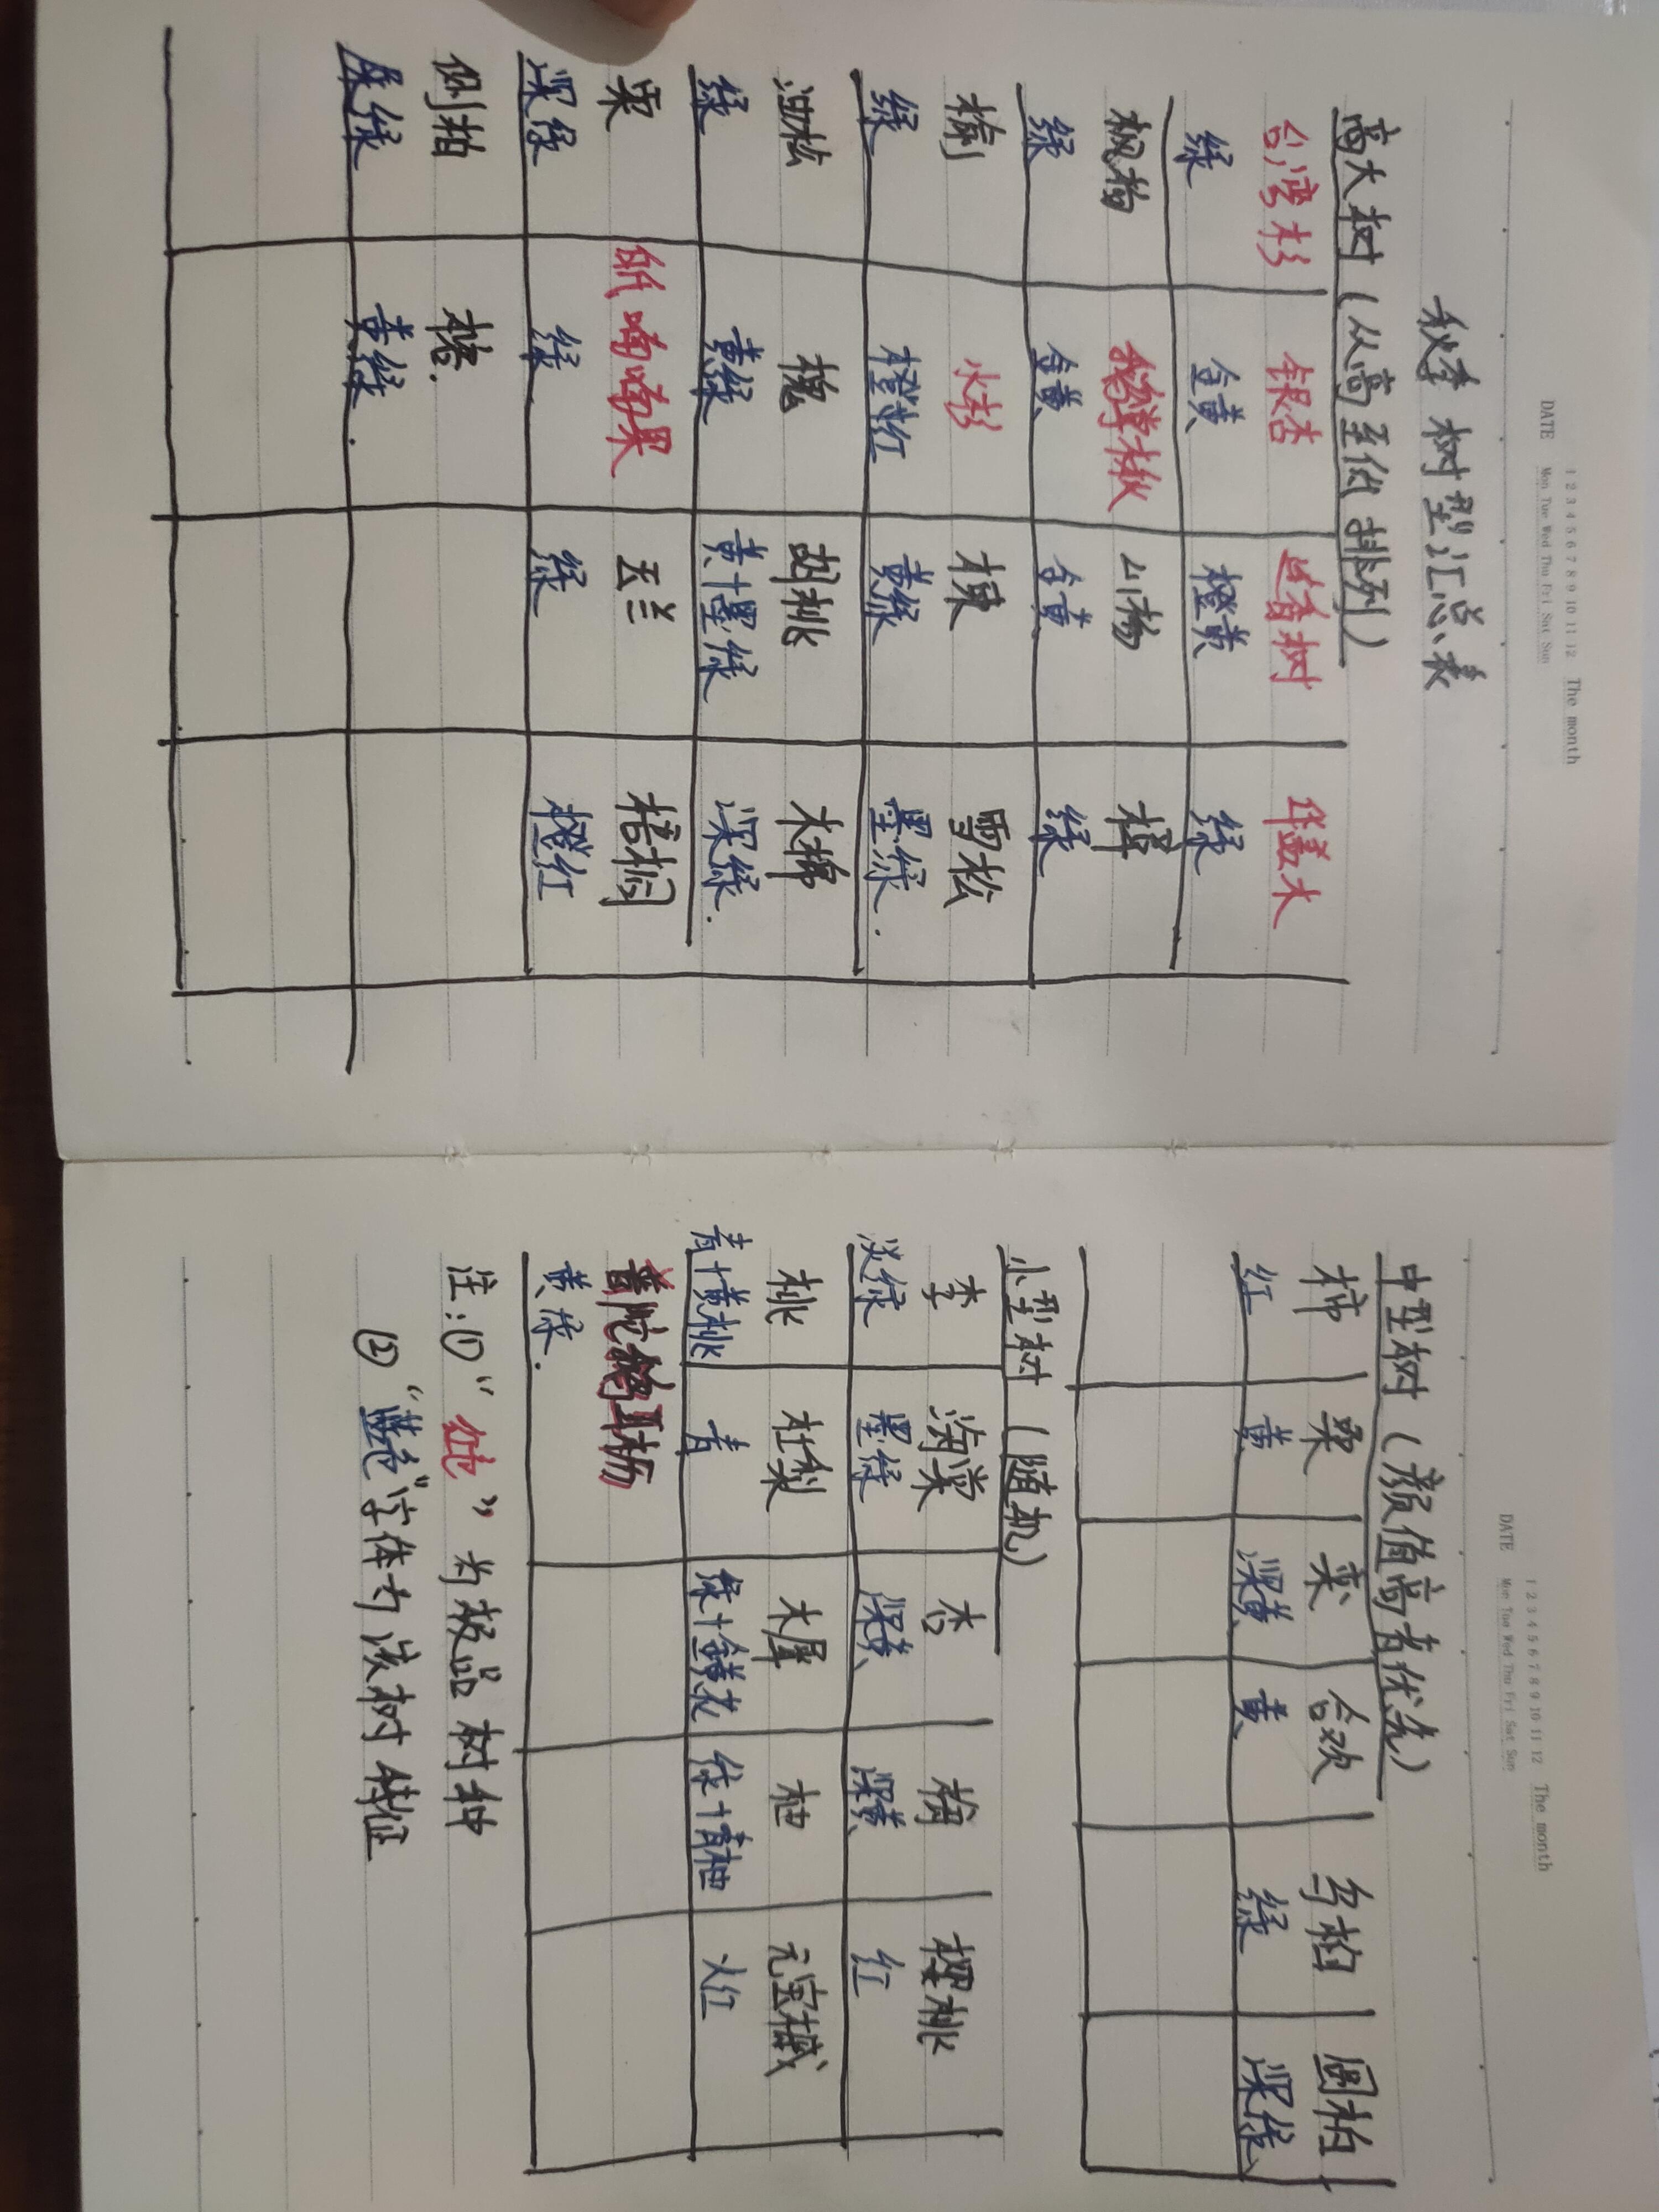 DATE 1 2 3 4 5 6 7 8 9 10 11 12 The month
Mon Tue Wed Thu Fri Sat Sun
秋季树型汇总表
高大树(从高至低排列)
台湾杉 银杏 连香树 华盖木
绿 金黄 橙黄 绿
枫柏 鹅掌楸 山杨 樟
绿 金黄 金黄 绿
榆 水杉 楝 雪松
绿 橙红 黄绿 墨绿.
油松 槐 胡桃 木棉
绿 黄绿 黄+墨绿 深绿.
栗 喃喃果 玉兰 梧桐
深绿 绿 绿 橙红
侧柏 槵.
墨绿 黄绿.
DATE 1 2 3 4 5 6 7 8 9 10 11 12 The month
Mon Tue Wed Thu Fri Sat Sun
中型树(颜值高者优先)
柿 桑 栾 合欢 乌桕 圆柏
红 黄 深黄 黄 绿 深绿
小型树(随机)
李 海棠 杏 梅 樱桃
淡绿 墨绿 深黄 深黄 红
桃 杜梨 木犀 柚 元宝槭
青+黄桃 青 绿+金黄花 绿+青柚 火红
普陀鹅耳枥
黄绿.
注:①“红色”为极品树种
②“蓝色”字体为该树特征